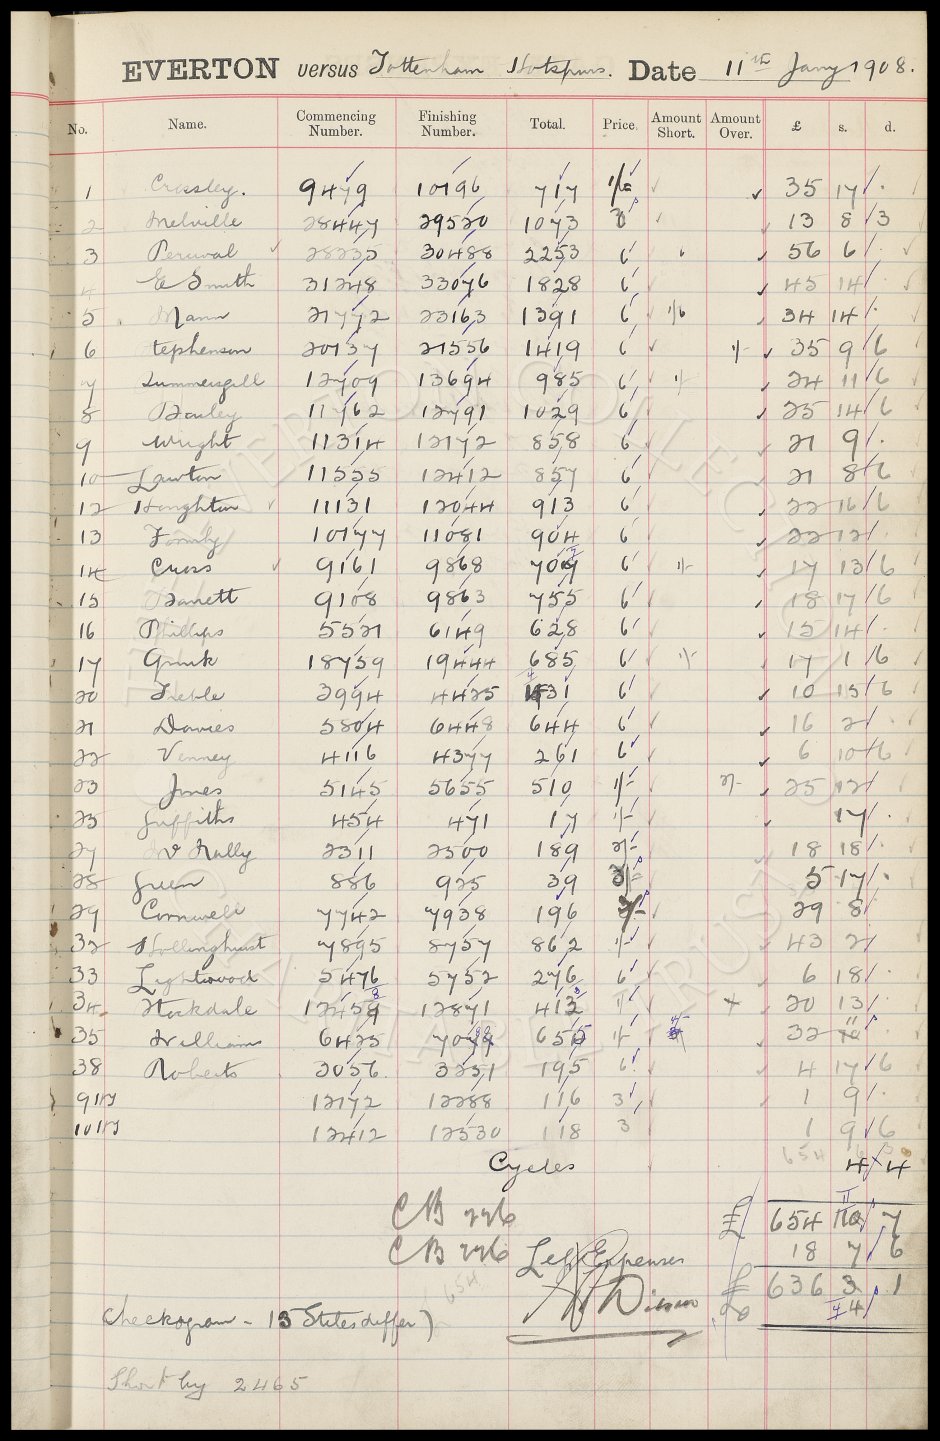 EVERTON versus Tottenham Hotspurs. Date 11th Jany 1908.
No. Name. Commencing Number. Finishing Number. Total. Price. Amount Short. Amount Over. £ s. d.
1 Crossley. 9479 10196 717 1/6 35 17 .
2 Melville 28447 29520 1073 3 13 8 3
3 Percival 28235 30488 2253 6 56 6 .
4 E Smith 31248 33076 1828 6 45 14 .
5 Mann 21772 23163 1391 6 1/6 34 14 .
6 tephenson 20137 21556 1419 6 1/- 35 9 6
7 Summersgill 12709 13694 985 6 1/- 24 11 6
8 Bailey 11762 12791 1029 6 25 14 6
9 Wright 11314 12172 858 6 21 9 .
10 Lawton 11555 12412 857 6 21 8 6
12 Houghton 11131 12044 913 6 22 16 6
13 Formby 10177 11081 904 6 22 12 .
14 Cross 9161 9868 707 6 1/- 17 13 6
15 Barrett 9108 9863 755 6 18 17 6
16 Phillips 5521 6149 628 6 15 14 .
17 Quirk 18759 19444 685 6 1/- 17 1 6
20 Treble 3994 4425 431 6 10 15 6
21 Davies 5804 6448 644 6 16 2 .
22 Venney 4116 4377 261 6 6 10 6
23 Jones 5145 5655 510 1/- 2/- 25 12 .
25 Griffiths 454 471 17 1/- 17 .
27 McNally 2311 2500 189 2/- 18 18 .
28 Green 886 925 39 3/- 5 17 .
29 Cornwell 7742 7938 196 3/- 29 8
32 Hollinghurst 7895 8757 862 1/- 43 2
33 Lightwood 5476 5752 276 6 6 18 .
34 Stockdale 12458 12871 413 1/- 20 13 .
35 Williams 6425 7079 655 1/- 32 11
38 Roberts 3056 3251 195 6 4 17 6
9 12172 12288 116 3 1 9 .
10 12412 12530 118 3 1 9 6
Cycles 4 4
CB 226 £ 654 11 7
CB 226 Less Expenses 18 7 6
£ 636 3 1
4
Short by 2465